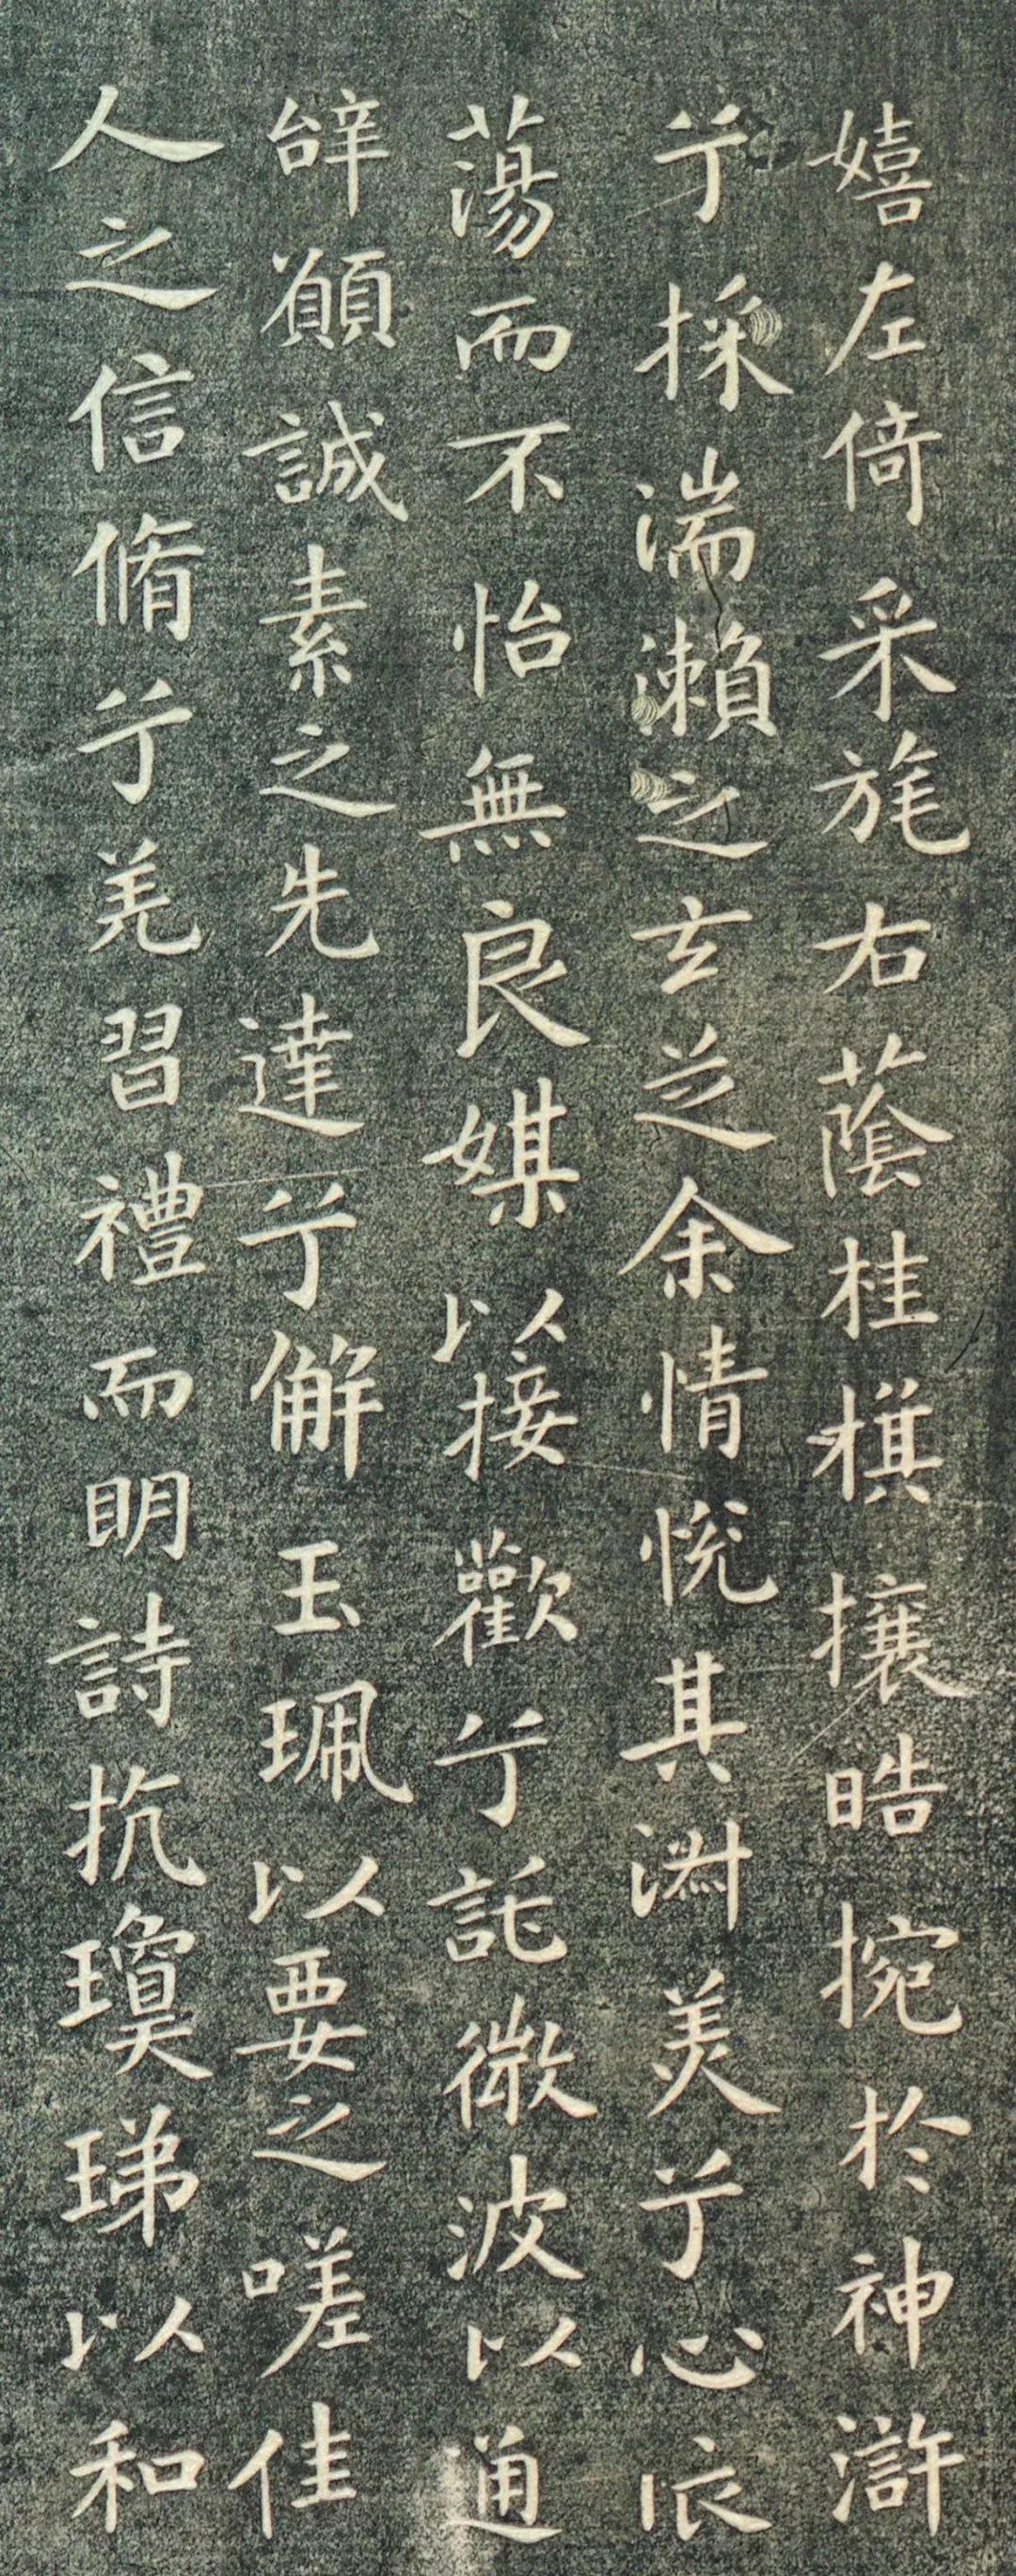 嬉左倚采旄右蔭桂棋攘皓捥於神滸
兮採湍濑之玄芝余情悅其淵美兮心依
蕩而不怡無良媒以接歡兮託微波以通
辝願誠素之先達兮解玉珮以要之嗟佳
人之信脩兮羌習禮而明詩抗瓊珶以和